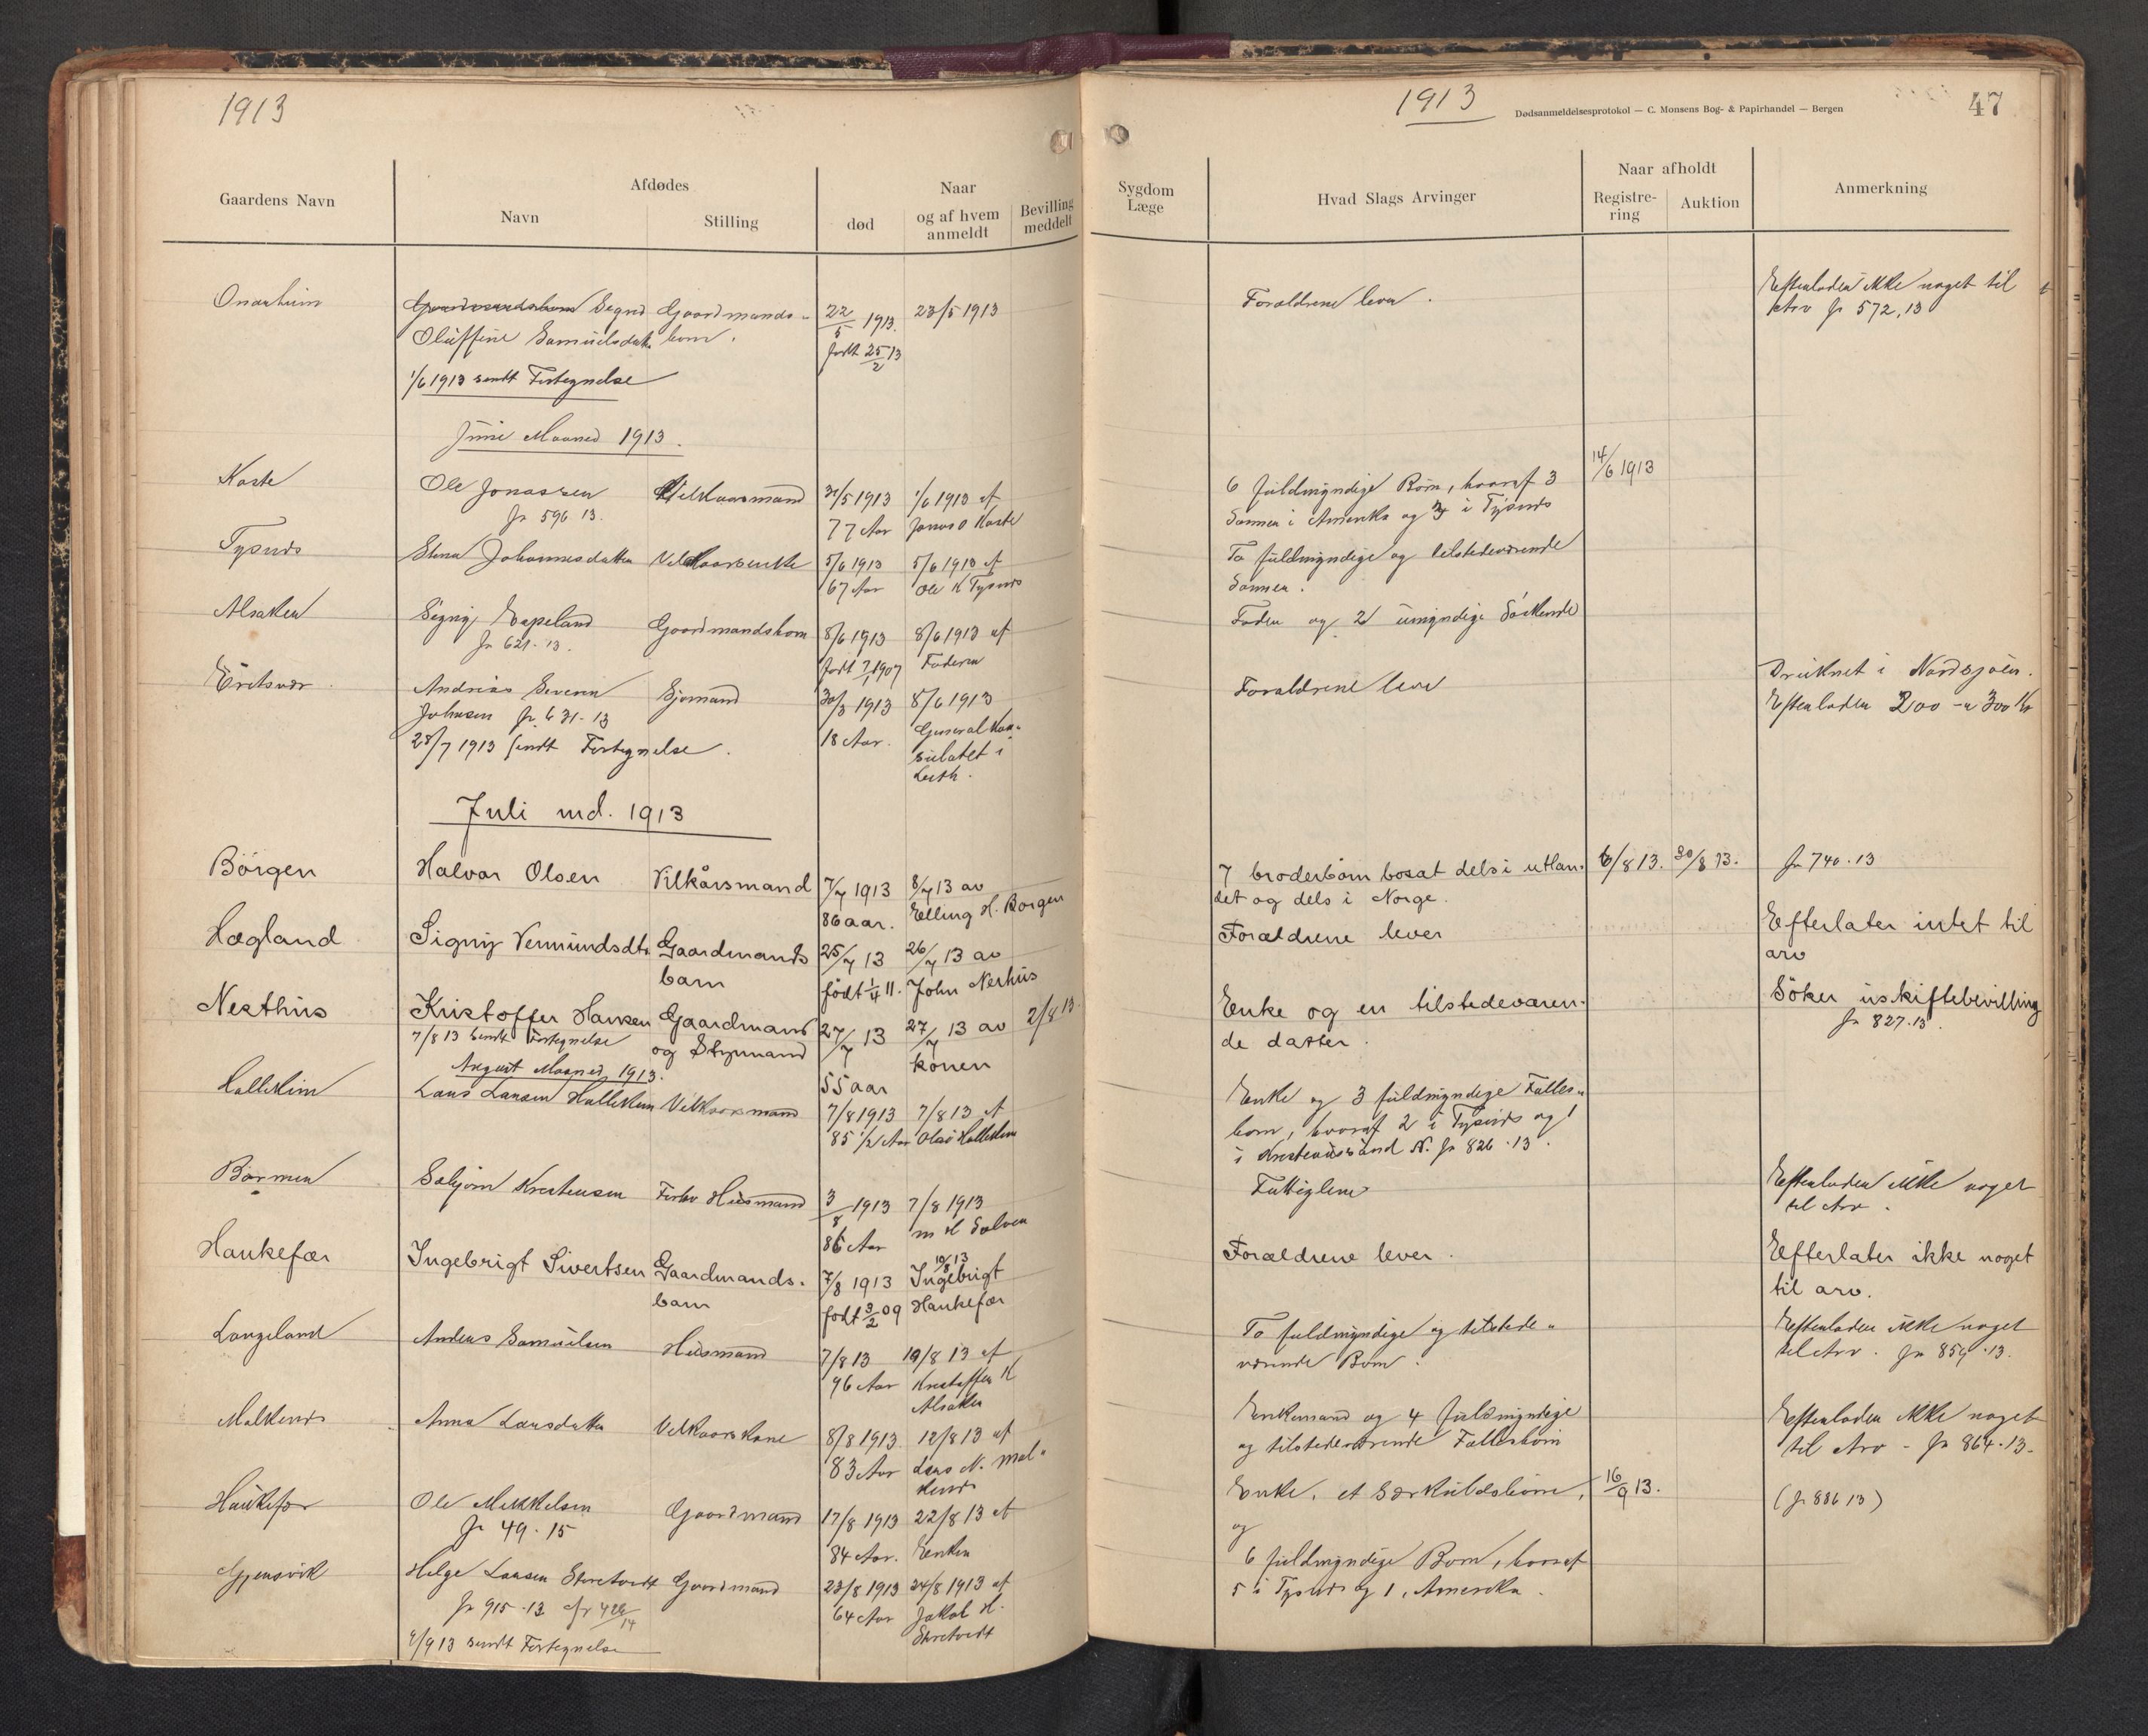 1913
Gaardens Navn
Afdødes
Navn
Stilling
Naar
død
og af hvem anmeldt
Bevilling meddelt
Onarheim
Gaardmandsbarn Signe Gaardmands-
Oluffine Samuelsdatter barn.
22/5 1913.
født 25/2 13
23/5 1913
1/6 1913 sendt Fortegnelse
Juni Maaned 1913.
Kaste
Ole Jonassen
Jr 596 13.
Vilkaarsmand
31/5 1913
77 Aar
1/6 1913 af
Jonas O Kaste
Tysnes
Stena Johannesdatter
Vilkaarsenke
5/6 1913
67 Aar
5/6 1913 af
Ole K Tysnes
Alsaker
Signy Espeland
Jr 621-13.
Gaardmandsbarn
8/6 1913
født 7/1 1907
8/6 1913 af
Faderen
Eritsvær
Andreas Severin
Johnsen Jr 631-13
25/7 1913 sendt Fortegnelse.
Sjømand
30/3 1913
18 Aar.
8/6 1913
General Kon-
sulatet i
Leith.
Juli md. 1913
Börgen
Halvor Olsen
Vilkårsmand
7/7 1913
86 aar.
8/7 13 av
Elling H. Borgen
Hægland
Signy Vermundsdtr
Gaardmands
barn
25/7 13
født 1/4 11.
26/7 13 av
John Nerhus
Nesthus
Kristoffer Hansen
7/8 13 sendt Fortegnelse
Gaardmand
og Styrmand
27/7 13
55 aar
27/7 13 av
konen
2/8 13
August Maaned 1913.
Hallekim
Lars Larsen Hallekim
Vilkaarsmand
7/8 1913
85 1/2 Aar
7/8 13 af
Olai Hallekim
Børmen
Sæbjörn Kristensen
Forhv Husmand
3/8 1913
86 Aar
7/8 1913
m H Solven
Haukefær
Ingebrigt Sivertsen
Gaardmands.
barn
7/8 1913
født 3/2 09
10/8 13
Ingebrigt
Haukefær
Langeland
Anders Samuelsen
Husmand
7/8 13
96 Aar
19/8 13 af
Kristoffer K
Alsaker
Malkenes
Anna Larsdatter
Vilkaarskone
8/8 1913.
83 Aar
12/8 13 af
Lars N. Mal-
kenes
Haukefær
Ole Mikkelsen
Jr 49-15
Gaardmand
17/8 1913
84 Aar.
22/8 13 af
Enken
Gjensvik
Helge Larsen Skretvedt
Jr 915-13 cfr 428/14
Gaardmand
23/8 1913
64 Aar
24/8 1913 af
Jakob H.
Skretvedt
9/9 13 sendt Fortegnelse
1913
Dødsanmeldelsesprotokol — C. Monsens Bog- & Papirhandel — Bergen
47
Sygdom
Læge
Hvad Slags Arvinger
Naar afholdt
Registre-
ring
Auktion
Anmerkning
Forældrene lever.
Efterlader ikke noget til
Arv Jr 572.13
6 fuldmyndige Børn, hvoraf 3
Sønner i Amerika og 3 i Tysnes
14/6 1913
To fuldmyndige og tilstedeværende
Sønner.
Fader og 2 umyndige Søskende
Forældrene lever
Druknet i Nordsjøen.
Efterlader 200 - a 300 Kr
7 broderbörn bosat dels i utlan-
det og dels i Norge.
6/8 13.
30/8 13.
Jr 740.13
Forældrene lever
Efterlater intet til
arv
Enke og en tilstedeværen-
de datter.
Söker uskiftebevilling
Jr 827.13.
Enke og 3 fuldmyndige Fælles-
børn, hvoraf 2 i Tysnes og 1
i Kristianssund N. Jr 826.13.
Fattiglem
Efterlader ikke noget
til Arv.
Forældrene lever.
Efterlater ikke noget
til arv.
To fuldmyndige og tilstede-
værende Børn.
Efterlader ikke noget
til Arv. Jr 859.13.
Enkemand og 4 fuldmyndige
og tilstedeværende Fællesbørn
Efterlader ikke noget
til Arv - Jr 864.13.
Enke, et Særkuldsbarn,
16/9 13.
(Jr 886 13)
og
6 fuldmyndige Børn, hvoraf
5 i Tysnes og 1 i Amerika.